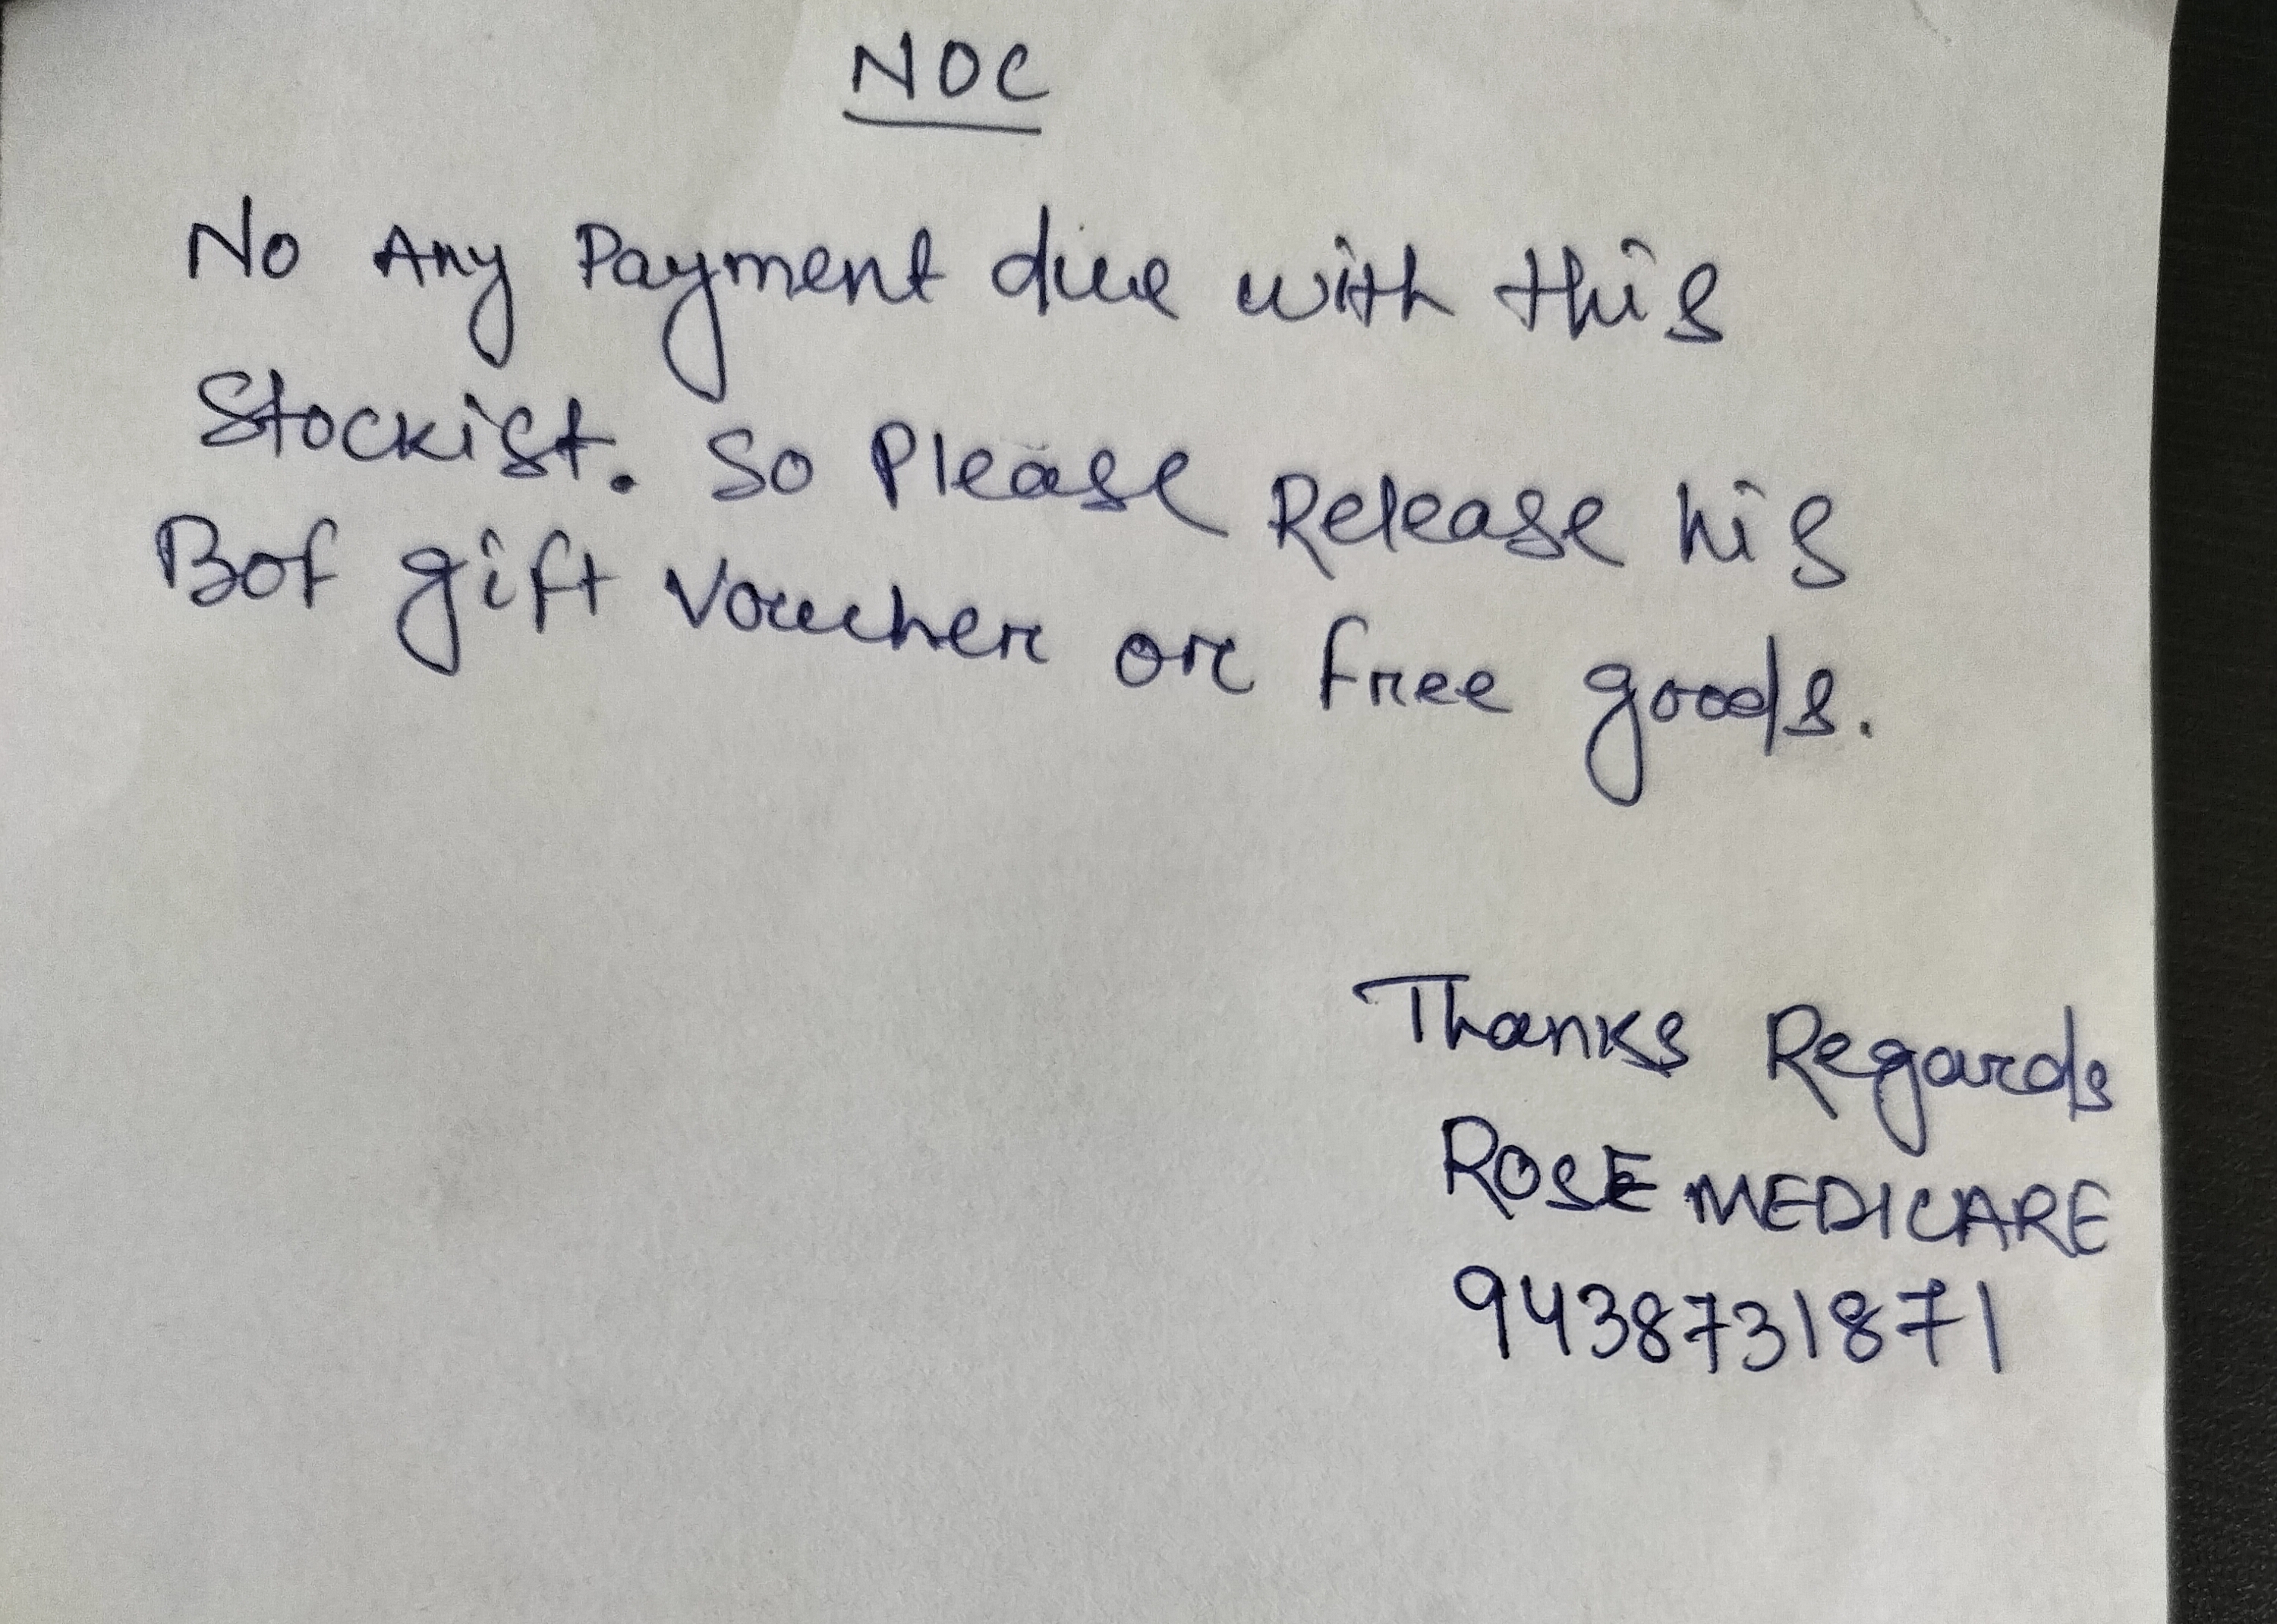 NOC
No Any Payment due with this
Stockist. So Please Release his
Bof gift Voucher or free goods.
Thanks Regards
ROSE MEDICARE
9438731871